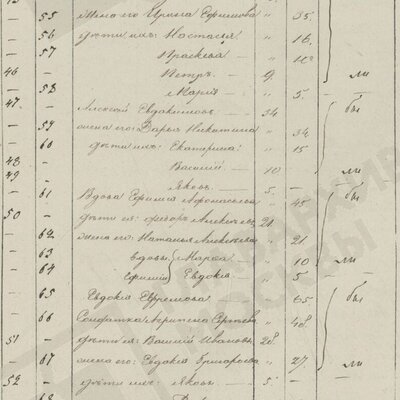 55 жена его: Ирина Ефимова " 35.
56 дѣти ихъ: Настасья " 16.
57 Прасковья " 10
46 Петръ 9.
58 Марiя " 5. ли
47. Алексей Евдокимовъ 34 бы
59 жена его: Дарья Никитина " 34
60 дѣти ихъ: Екатерина " 15
48 Василiй 10 ли
49 Яковъ 5
61 Вдова Ефимiя Афонасьева " 45 бы
50 дѣти ея: Алексѣевъ 21
62 жена его: Наталья Алексеева " 21
63 вдовы Марѳа " 10 ли
64 Ефимiи Евдокiя " 5
65 Евдокiя Ефремова " 65 бы
66 Солдатка " 48.
51 дѣти ея: Василiй Ивановъ 28.
67 жена его: Евдокiя Григорьева " 27. ли
52 дѣти ихъ: Яковъ 5
68